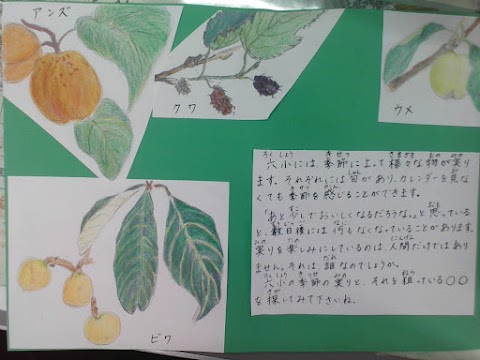 アンズ
クワ
ウメ
ビワ
六小には 季節によって 様々な物が実り
ます。それぞれには旬があり、カレンダーを見な
くても季節を感じることができます。
「あと少しでおいしくなるだろうな。」と思っている
と、数日後には何もなくなっていることがあります。
実りを楽しみにしているのは、人間だけではあり
ません。それは誰なのでしょうか。
六小の季節の実りと、それを狙っている〇〇
を探してみて下さいね。